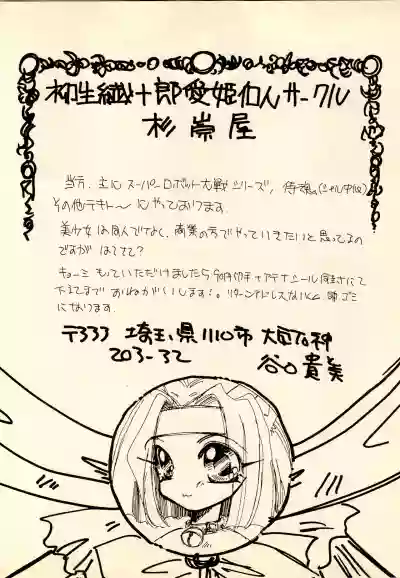 柳生織十郎愛姫個人サークル
杉崇屋
当方、主に スーパーロボット大戦シリーズ、侍魂、
その他テキトーにやっております。
美少女は同人でなく、商業の方でやっていきたいと思ってるの
ですが はてさて?
キョーミ もっていただけましたら 90円切手+アテナシール同封にて
下まで おねがいします。リターンアドレスないTCは 即ゴミ
になります。
〒333 埼玉県川口市
203-32
谷口貴美